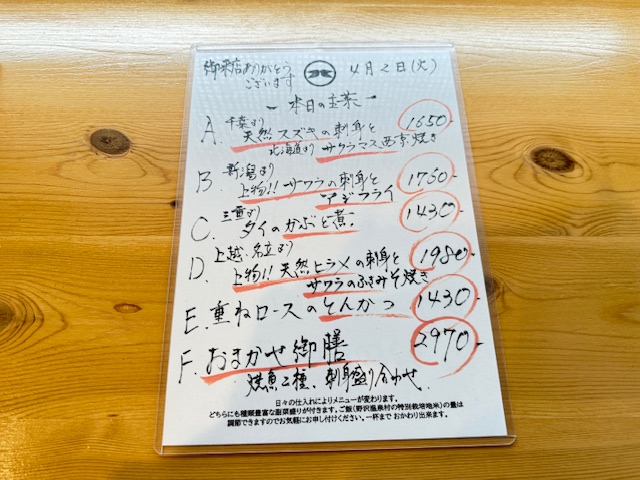 御来店ありがとう
ございます
4月2日(火)
ー本日の主菜ー
A. 千葉より
天然スズキの刺身と 1650-
北海道よりサクラマス西京焼き
B. 新潟より
上物!!サワラの刺身と 1750-
アジフライ
C. 三重より
タイのかぶと煮 1430-
D. 上越、名立より
上物!!天然ヒラメの刺身と 1980-
サワラのふきみそ焼き
E. 重ねロースのとんかつ 1430-
F. おまかせ御膳 2970-
焼魚二種、刺身盛り合わせ
日々の仕入れによりメニューが変わります。
どちらにも種類豊富な副菜盛りが付きます。ご飯(野沢温泉村の特別栽培地米)の量は
調節できますのでお気軽にお申し付けください。一杯まで おかわり出来ます。